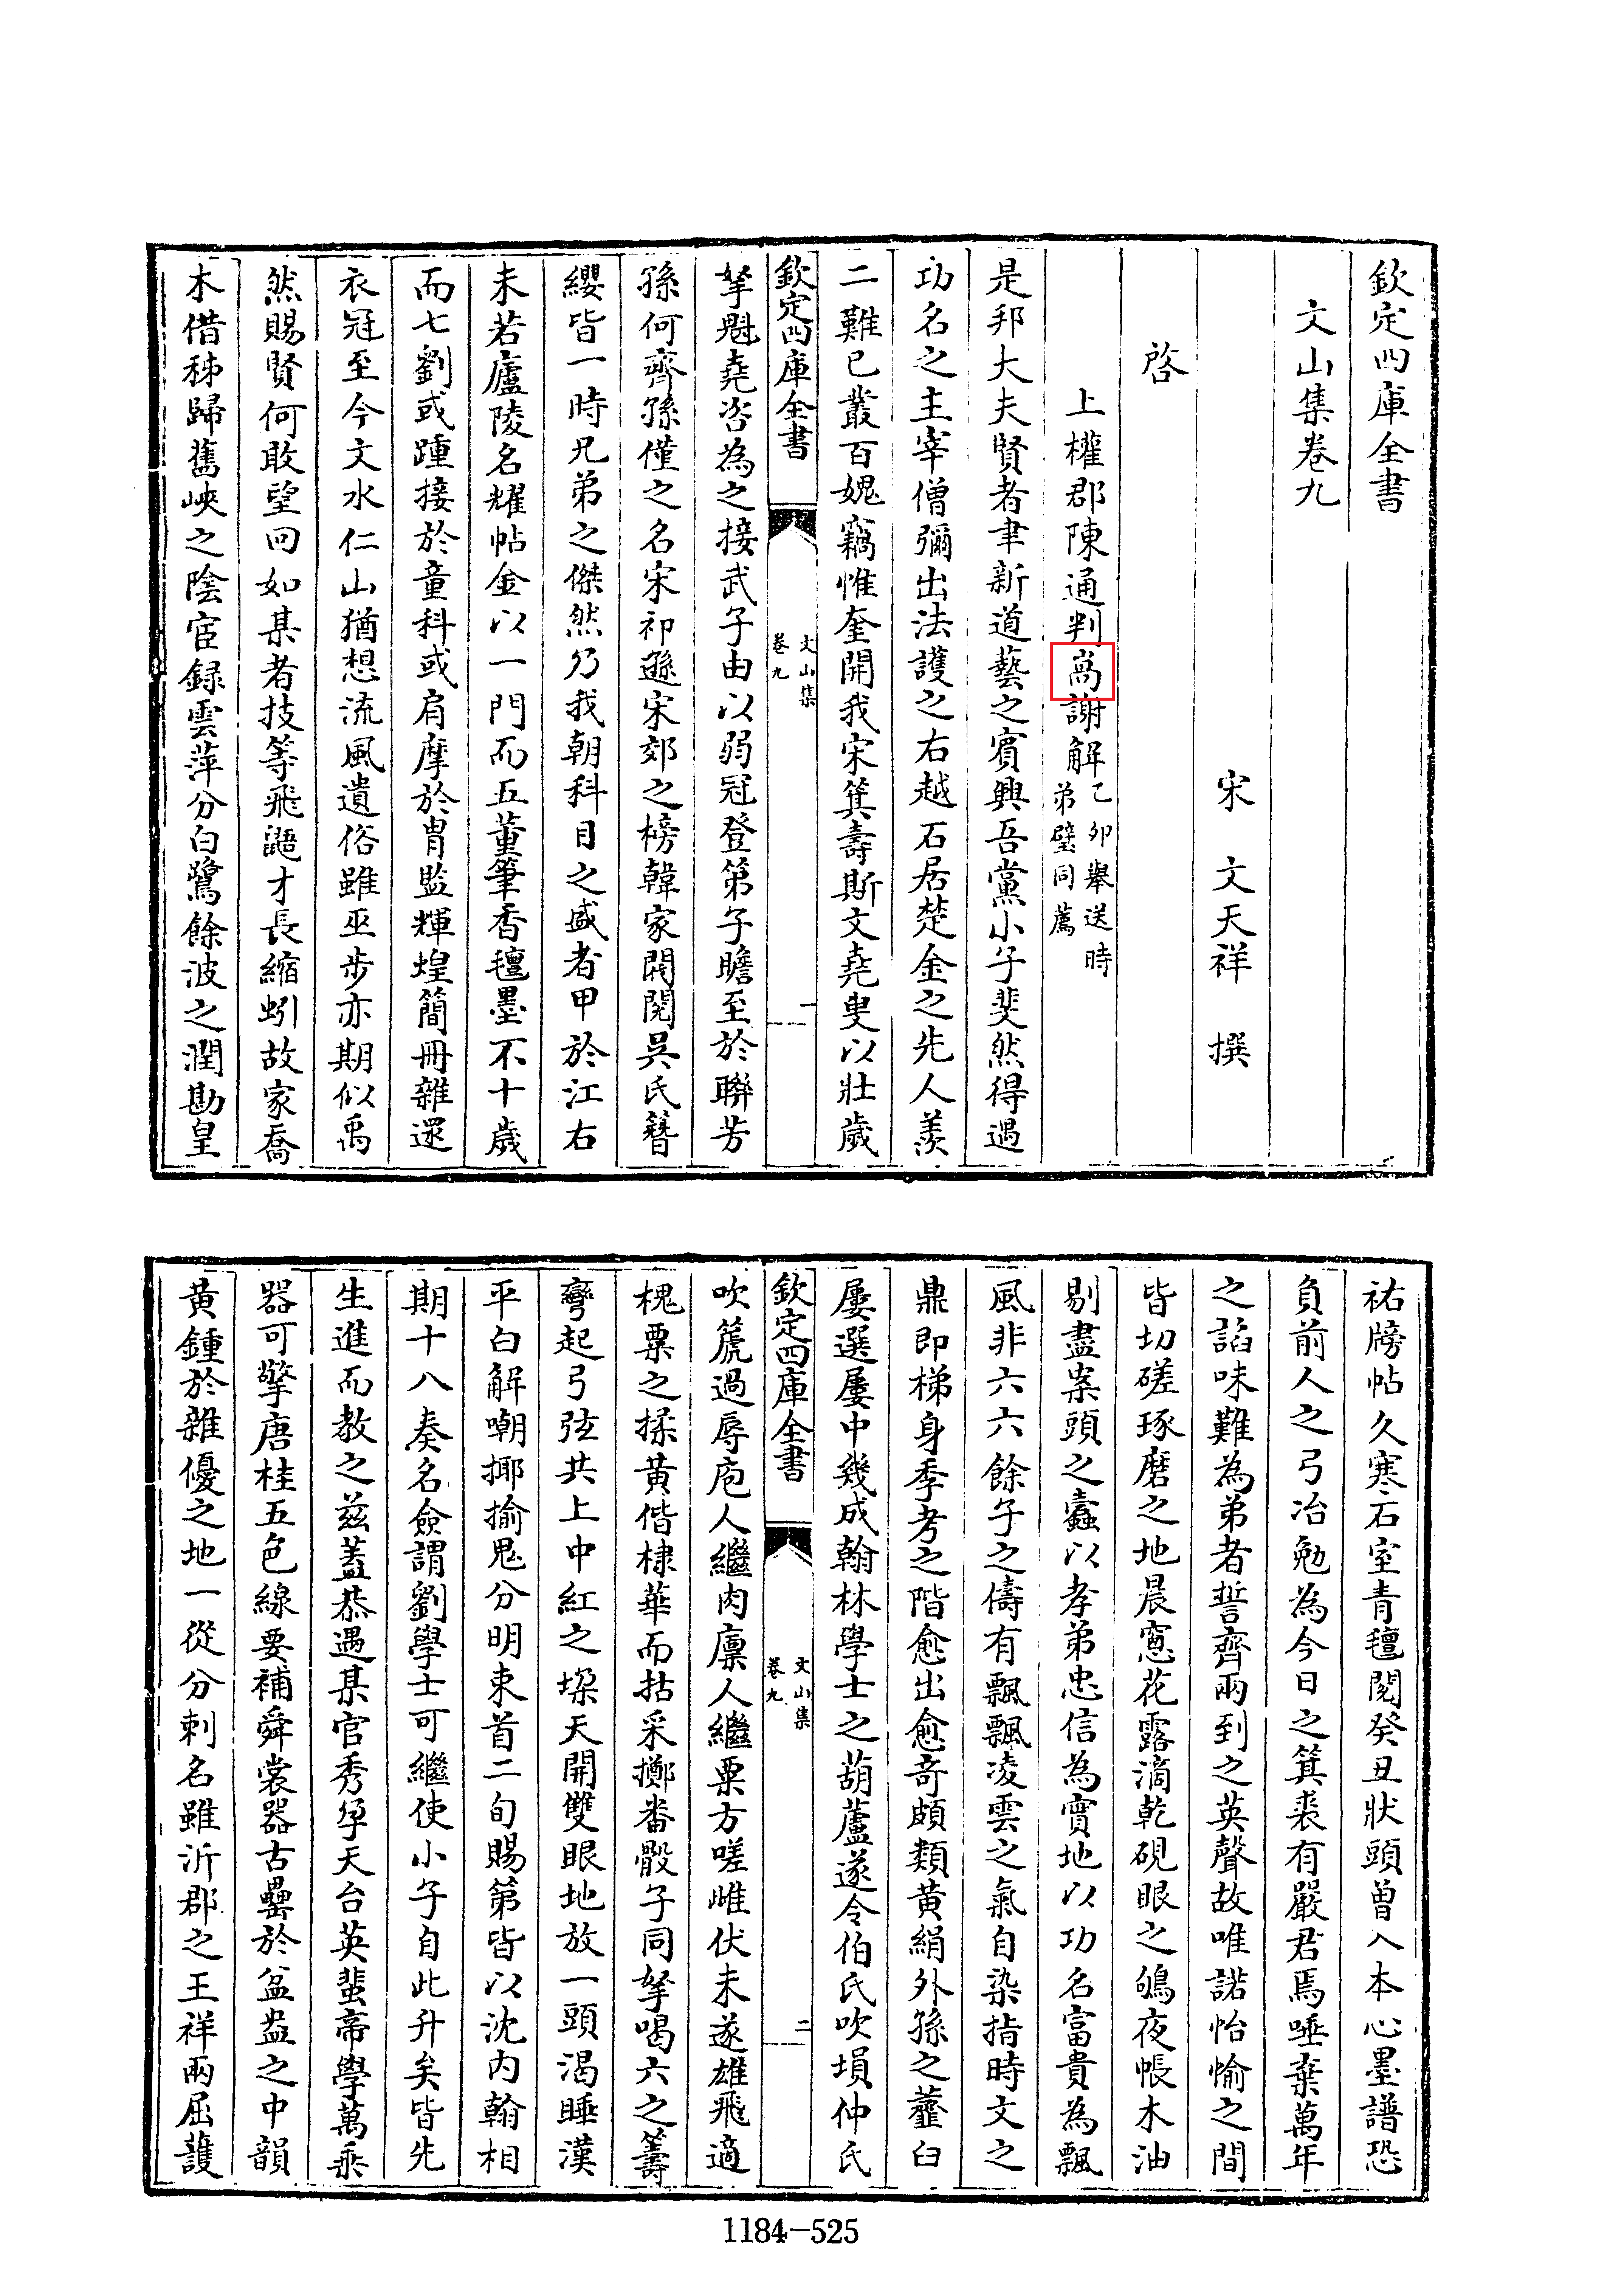 欽定四庫全書
文山集卷九
宋 文天祥 撰
啓
上權郡陳通判崗謝解乙卯舉送時弟璧同薦
是邦大夫賢者聿新道藝之賓興吾黨小子斐然得遇
功名之主宰僧彌出法護之右越石居楚金之先人羨
二難已叢百媿竊惟奎開我宋箕壽斯文堯叟以壯歲
欽定四庫全書
文山集
卷九
一
拏魁堯咨為之接武子由以弱冠登第子瞻至於聯芳
孫何齊孫僅之名宋祁遜宋郊之榜韓家閥閱吳氏簪
纓皆一時兄弟之傑然乃我朝科目之盛者甲於江右
未若廬陵名耀帖金以一門而五董筆香氊墨不十歲
而七劉或踵接於童科或肩摩於胄監輝煌簡冊雜遝
衣冠至今文水仁山猶想流風遺俗雖巫步亦期似禹
然賜賢何敢望回如某者技等飛鼯才長縮蚓故家喬
木借秭歸舊峽之陰宦録雲萍分白鷺餘波之潤勘皇
祐牓帖久寒石室青氊閱癸丑狀頭曾入本心墨譜恐
負前人之弓冶勉為今日之箕裘有嚴君焉唾棄萬年
之諂味難為弟者誓齊兩到之英聲故唯諾怡愉之間
皆切磋琢磨之地晨窻花露滴乾硯眼之鴝夜帳木油
剔盡案頭之蠹以孝弟忠信為實地以功名富貴為飄
風非六六餘子之儔有飄飄凌雲之氣自染指時文之
鼎即梯身季考之階愈出愈竒頗類黃絹外孫之虀臼
屢選屢中幾成翰林學士之葫蘆遂令伯氏吹塤仲氏
欽定四庫全書
文山集
卷九
二
吹篪過辱庖人繼肉廩人繼粟方嗟雌伏未遂雄飛適
槐粟之揉黃偕棣華而拈采擲畨骰子同拏喝六之籌
彎起弓弦共上中紅之垜天開雙眼地放一頭渴睡漢
平白解嘲揶揄鬼分明束首二旬賜第皆以沈內翰相
期十八奏名僉謂劉學士可繼使小子自此升矣皆先
生進而教之兹蓋恭遇某官秀孕天台英蜚帝學萬乘
器可擎唐桂五色線要補舜裳器古罍於盆盎之中韻
黃鍾於雜優之地一從分刺名雖沂郡之王祥兩屈護
1184-525